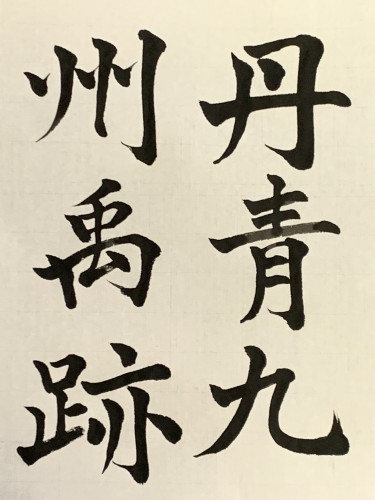 丹青九
州禹跡